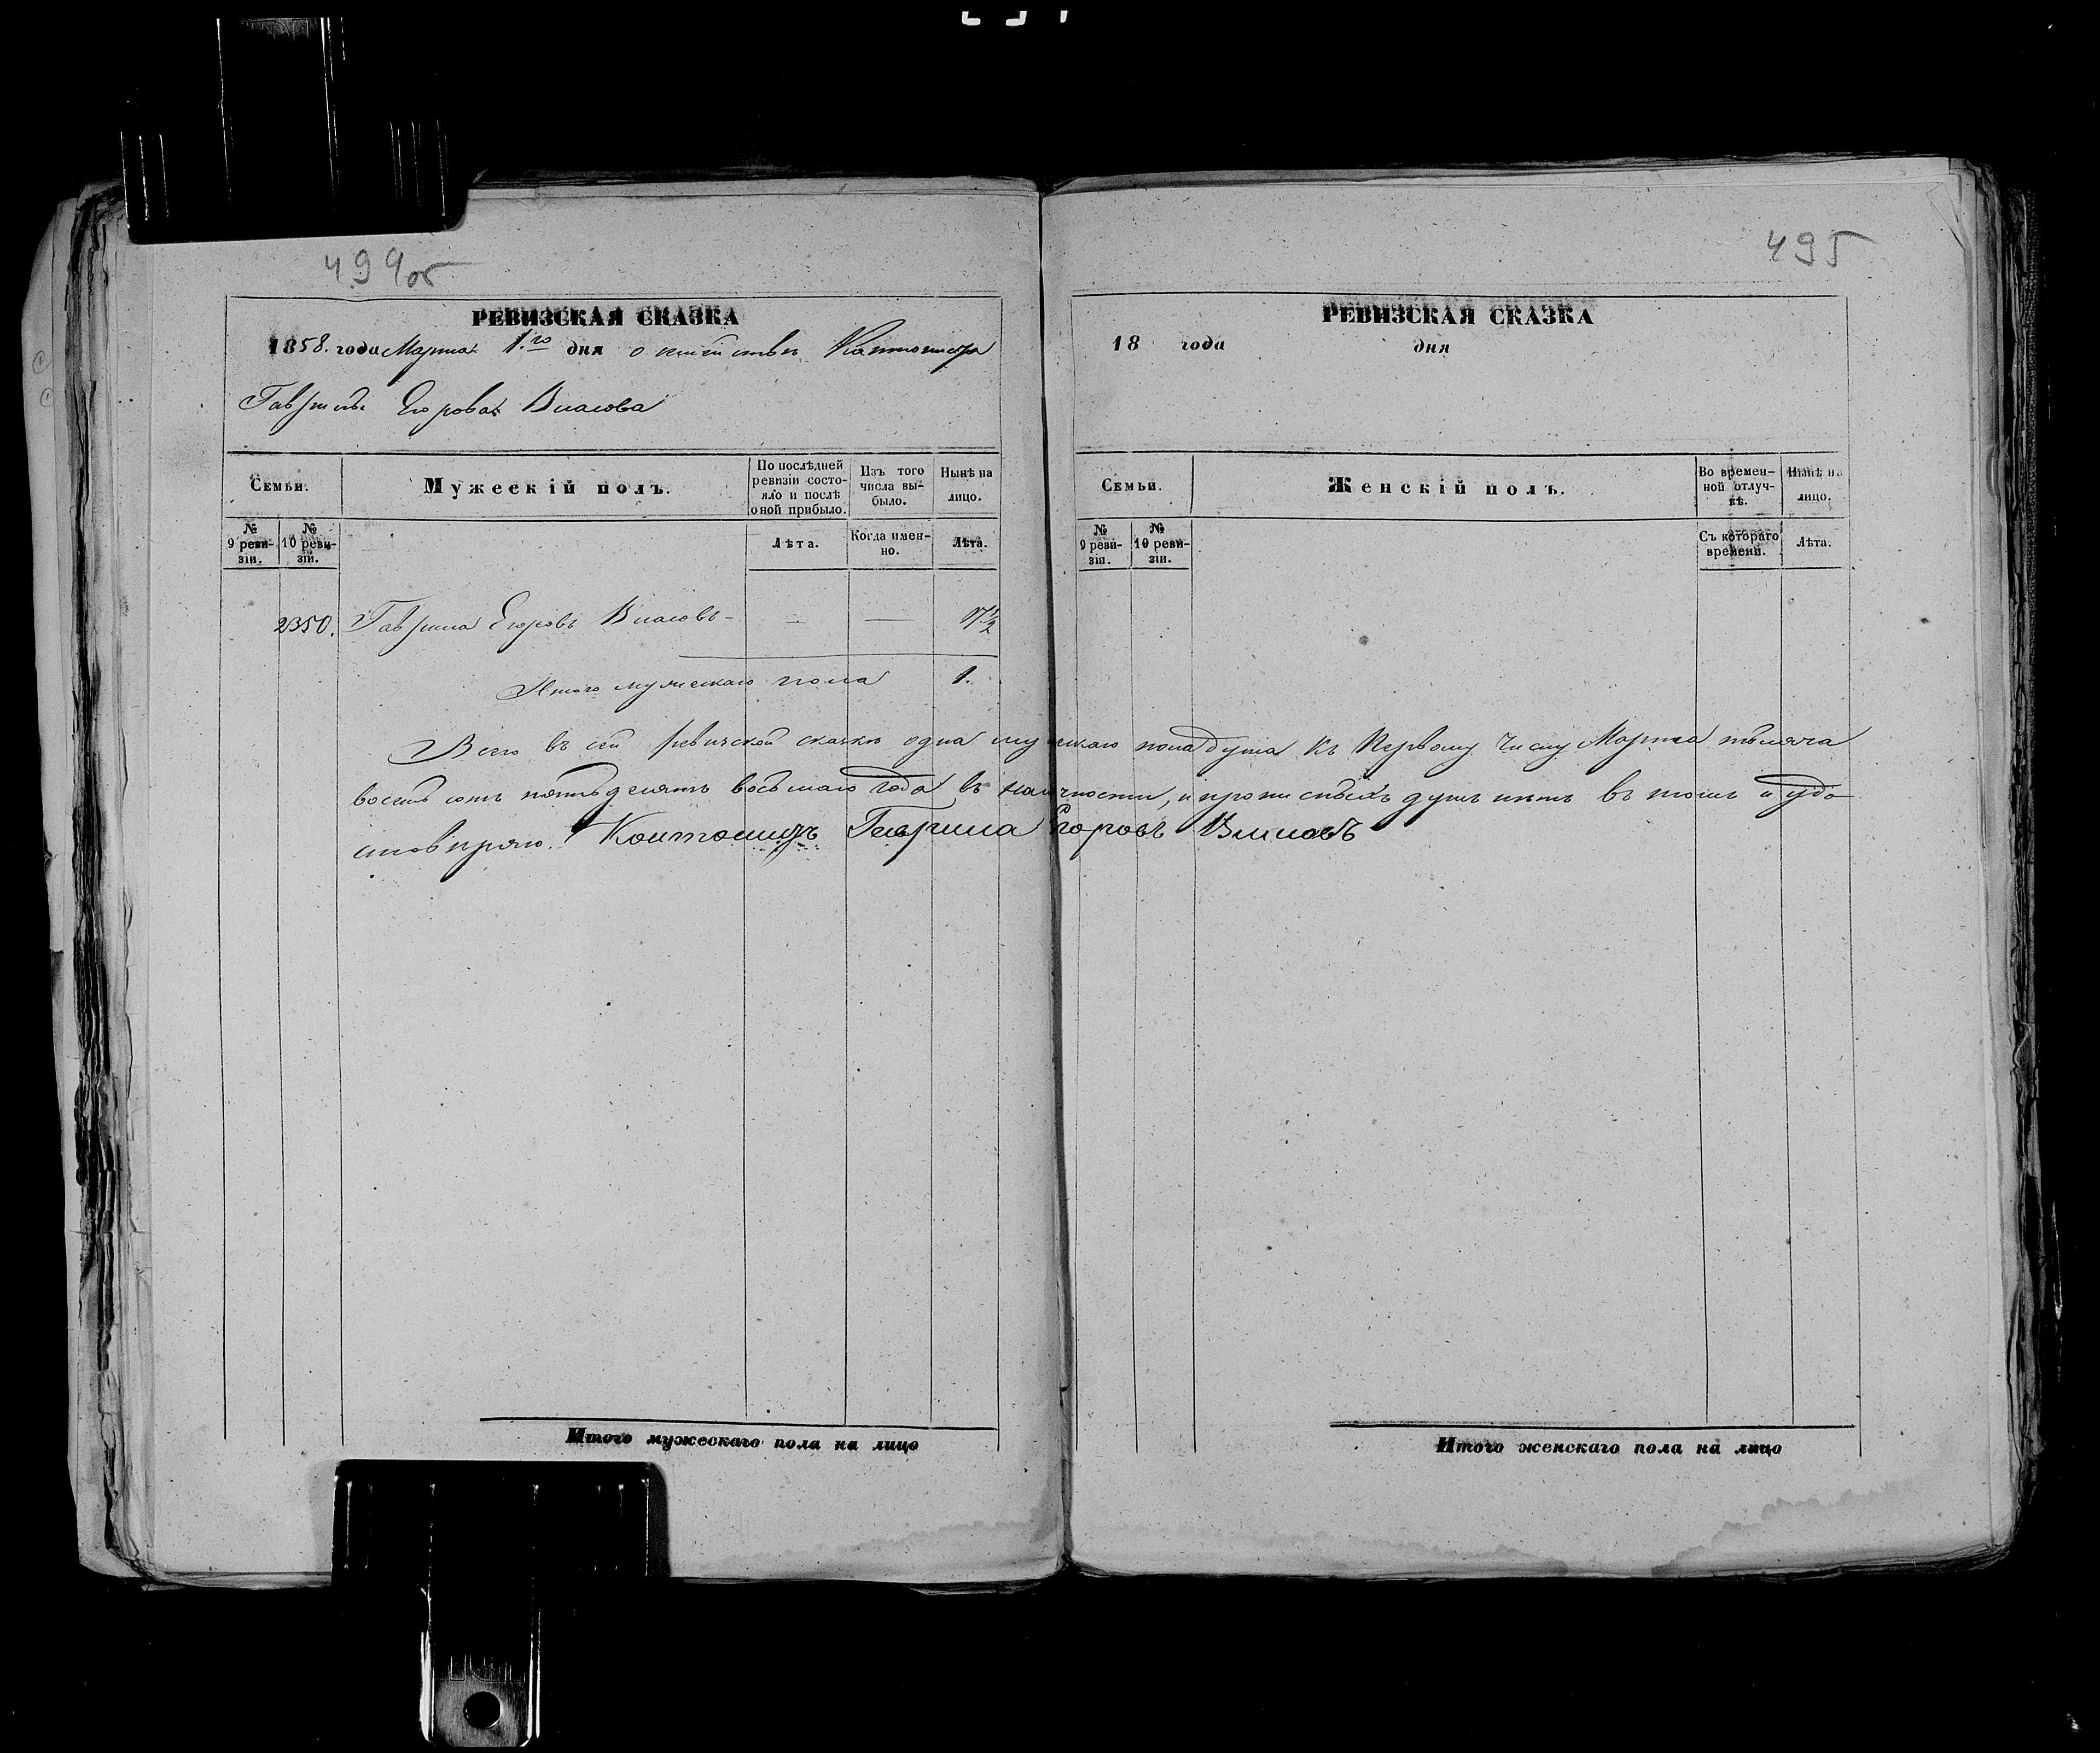 494об
РЕВИЗСКАЯ СКАЗКА
1858. года Марта 1.го дня о семействе Кантониста
Гаврилы Егорова Власова
Семьи.
Мужескій полъ.
По послѣдней ревизіи состояло и послѣ оной прибыло.
Изъ того числа выбыло.
Нынѣ на лицо.
№ 9 ревизіи.
№ 10 ревизіи.
Лѣта.
Когда именно.
Лѣта.
2350. Гаврила Егоровъ Власовъ - — — 17 1/2
Итого мужескаго пола 1.
495
РЕВИЗСКАЯ СКАЗКА
18 года дня
Семьи.
Женскій полъ.
Во временной отлучкѣ.
Нынѣ на лицо.
№ 9 ревизіи.
№ 10 ревизіи.
Съ котораго времени.
Лѣта.
Всего въ сей ревизской сказкѣ одна мужескаго пола душа къ Первому числу Марта тысяча
восемь сотъ пятьдесятъ восьмаго года въ наличности, и прописныхъ душъ нѣтъ въ томъ и удо-
стовѣряю. Контонистъ Гаврила Егоровъ Власовъ
Итого мужескаго пола на лицо
Итого женскаго пола на лицо